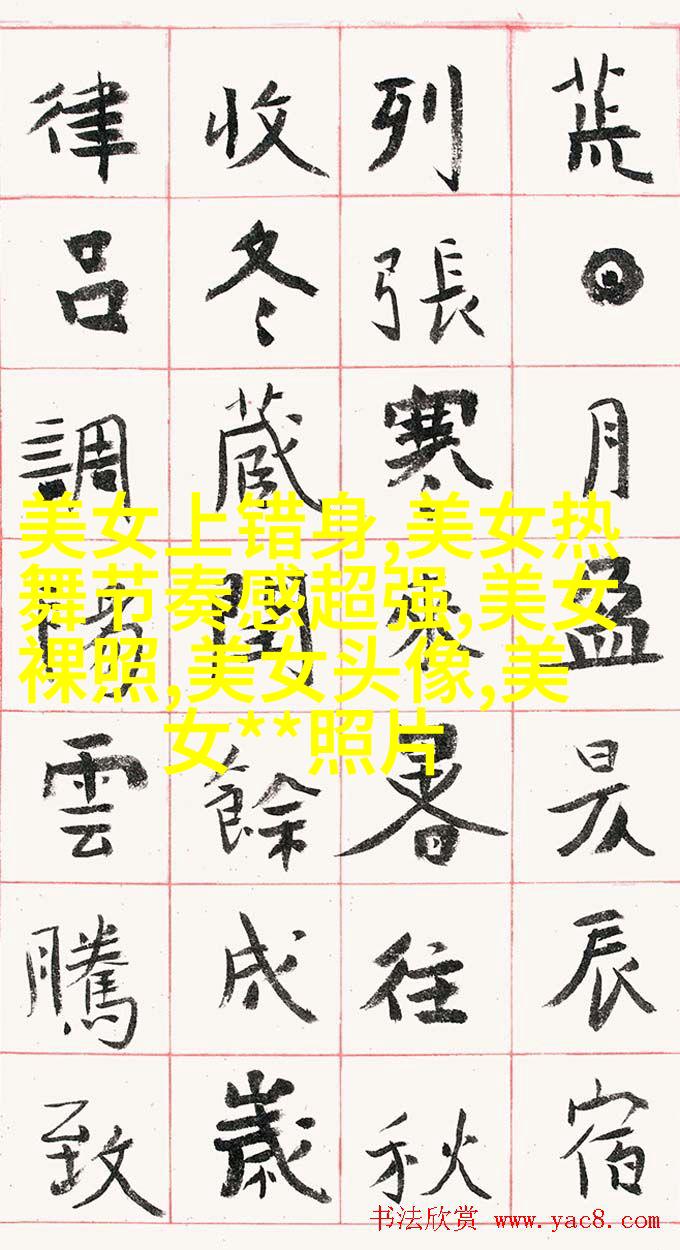 荒日月盈昃辰宿
列張寒來暑往秋
收冬藏閏餘成歲
律吕調陽雲騰致
美女上错身,美女热
舞节奏感超强,美女
裸照,美女头像,美
女**照片
书法欣赏 www.yac8.com